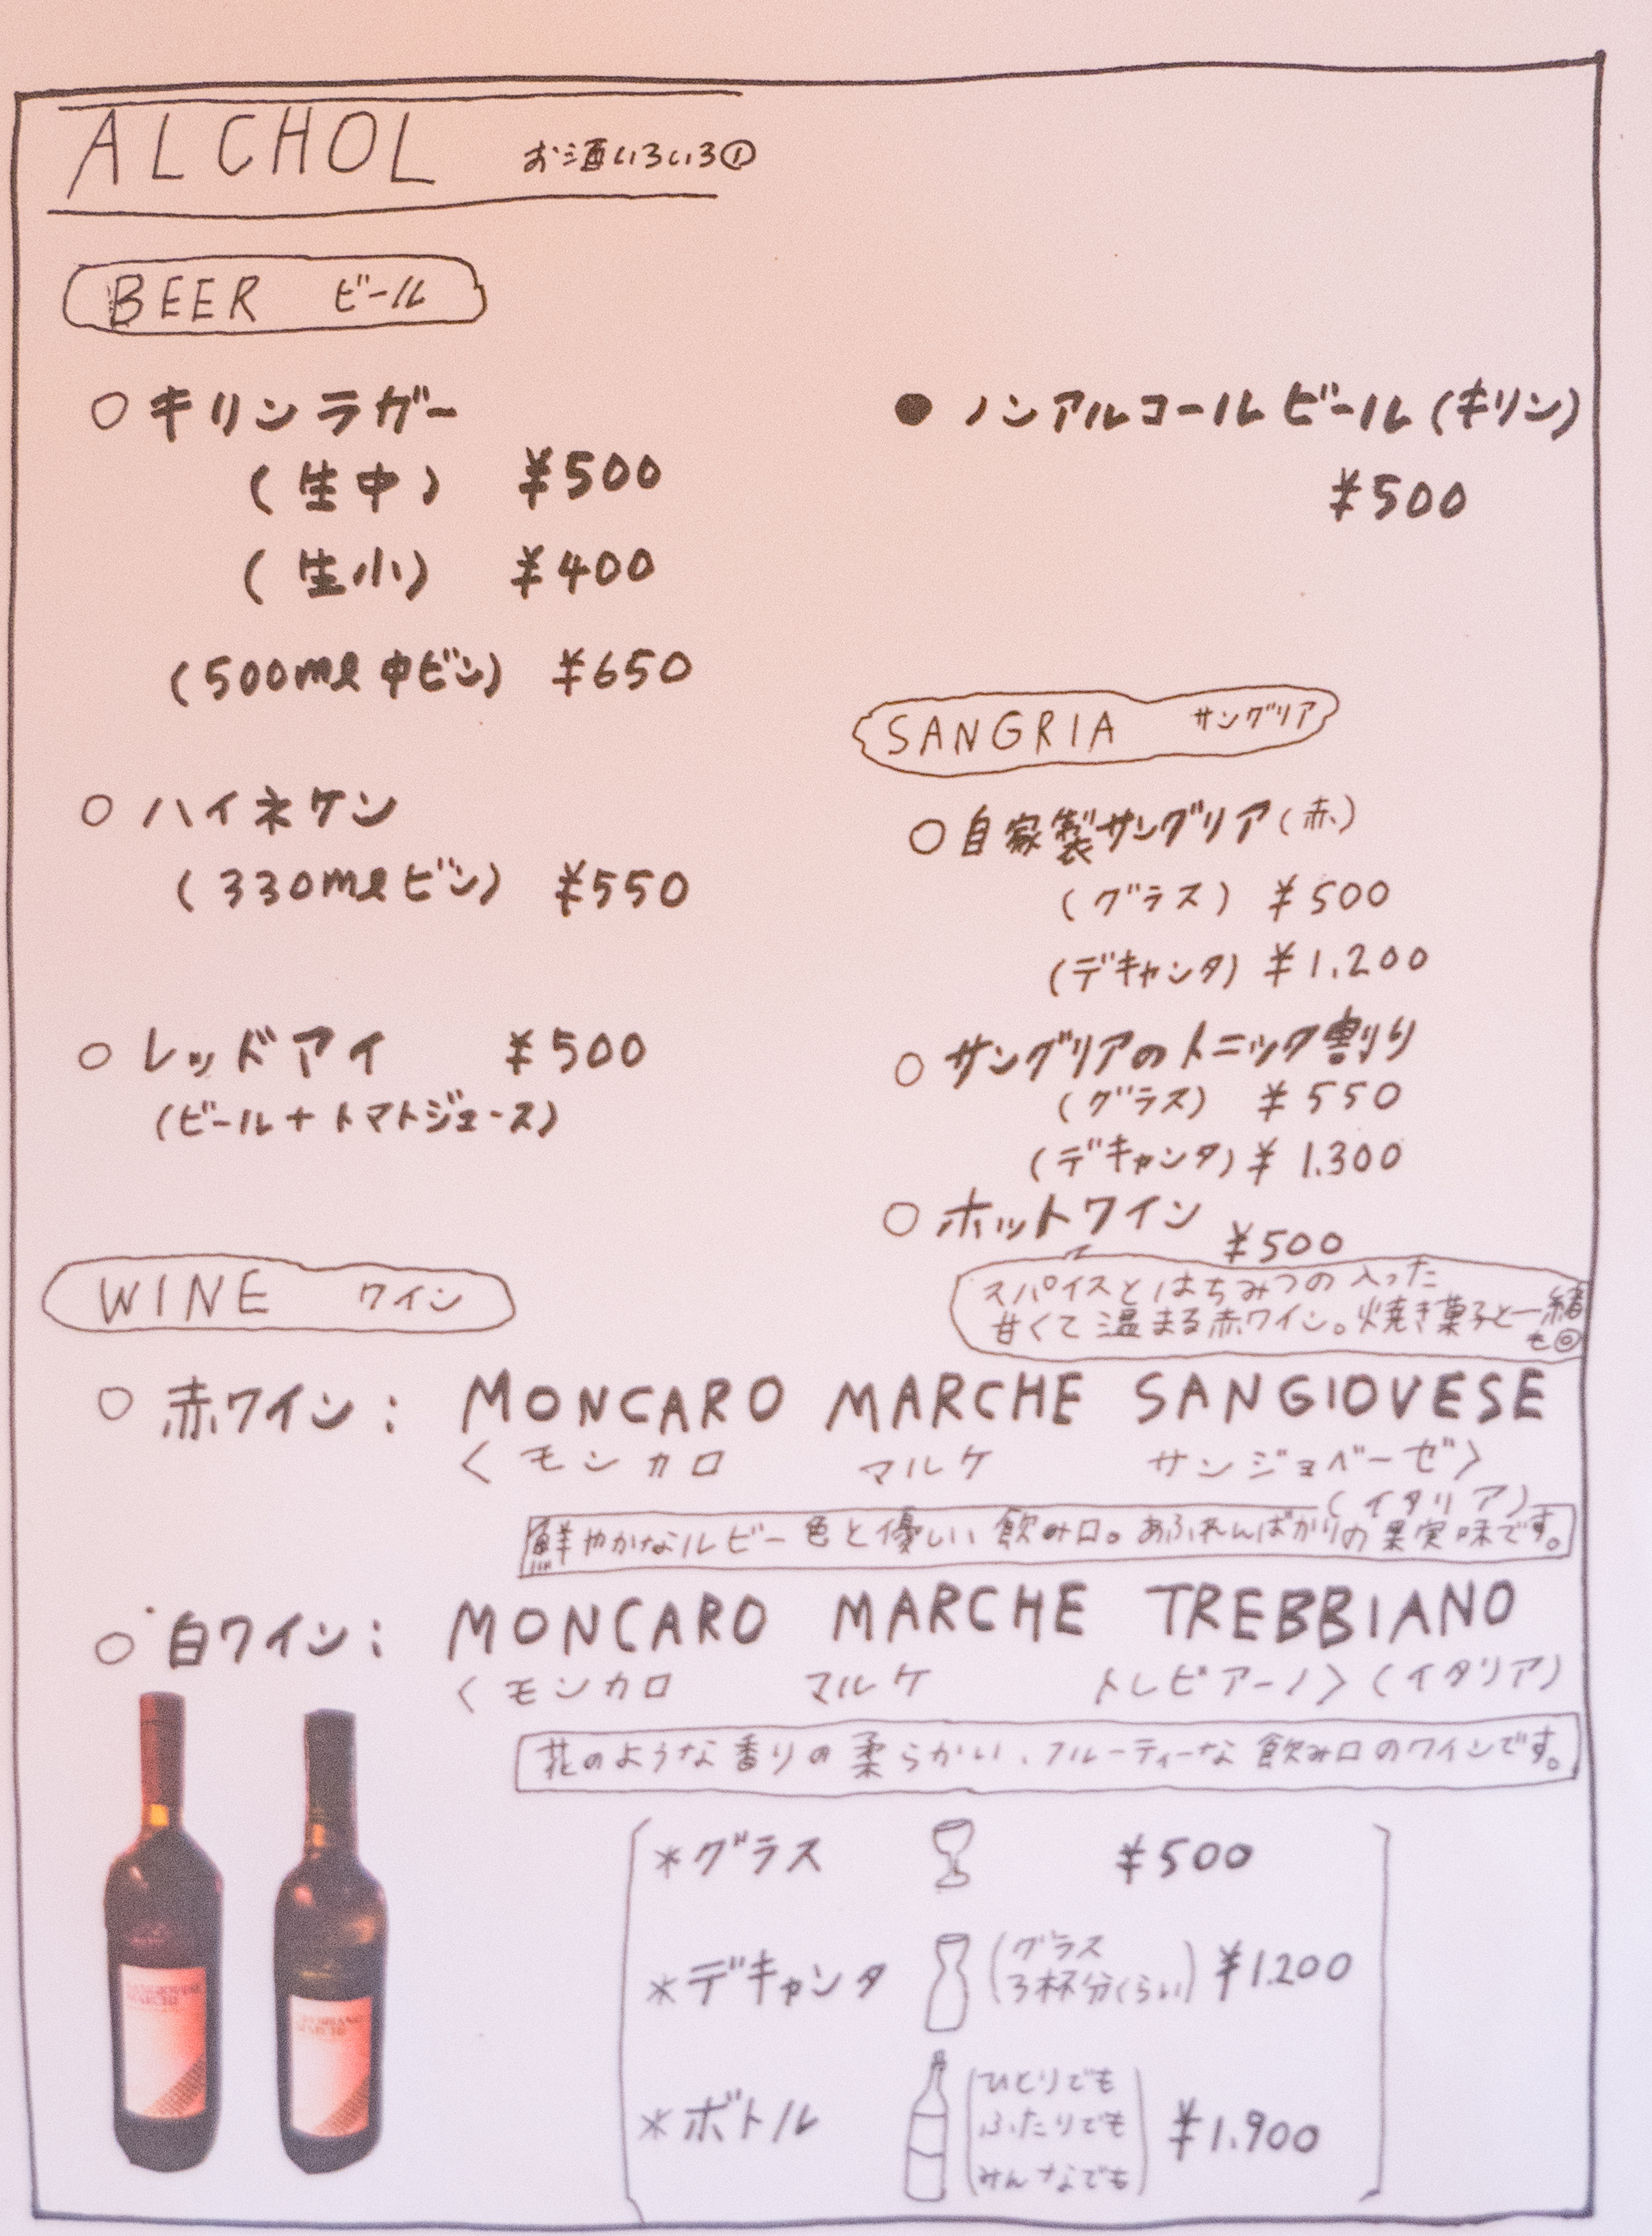 ALCHOL お酒いろいろ①
BEER ビール
○ キリンラガー
(生中) ¥500
(生小) ¥400
(500ml 中ビン) ¥650
○ ハイネケン
(330ml ビン) ¥550
○ レッドアイ ¥500
(ビール+トマトジュース)
● ノンアルコールビール(キリン)
¥500
SANGRIA サングリア
○ 自家製サングリア(赤)
(グラス) ¥500
(デキャンタ) ¥1.200
○ サングリアのトニック割り
(グラス) ¥550
(デキャンタ) ¥1.300
○ ホットワイン
¥500
スパイスとはちみつの入った
甘くて温まる赤ワイン。焼き菓子と一緒
も◎
WINE ワイン
○ 赤ワイン: MONCARO MARCHE SANGIOVESE
<モンカロ マルケ サンジョベーゼ>
(イタリア)
鮮やかなルビー色と優しい飲み口。あふれんばかりの果実味です。
○ 白ワイン: MONCARO MARCHE TREBBIANO
<モンカロ マルケ トレビアーノ>(イタリア)
花のような香りの柔らかい、フルーティーな飲み口のワインです。
*グラス ¥500
*デキャンタ (グラス 3杯分くらい) ¥1.200
*ボトル (ひとりでも ふたりでも みんなでも) ¥1.900